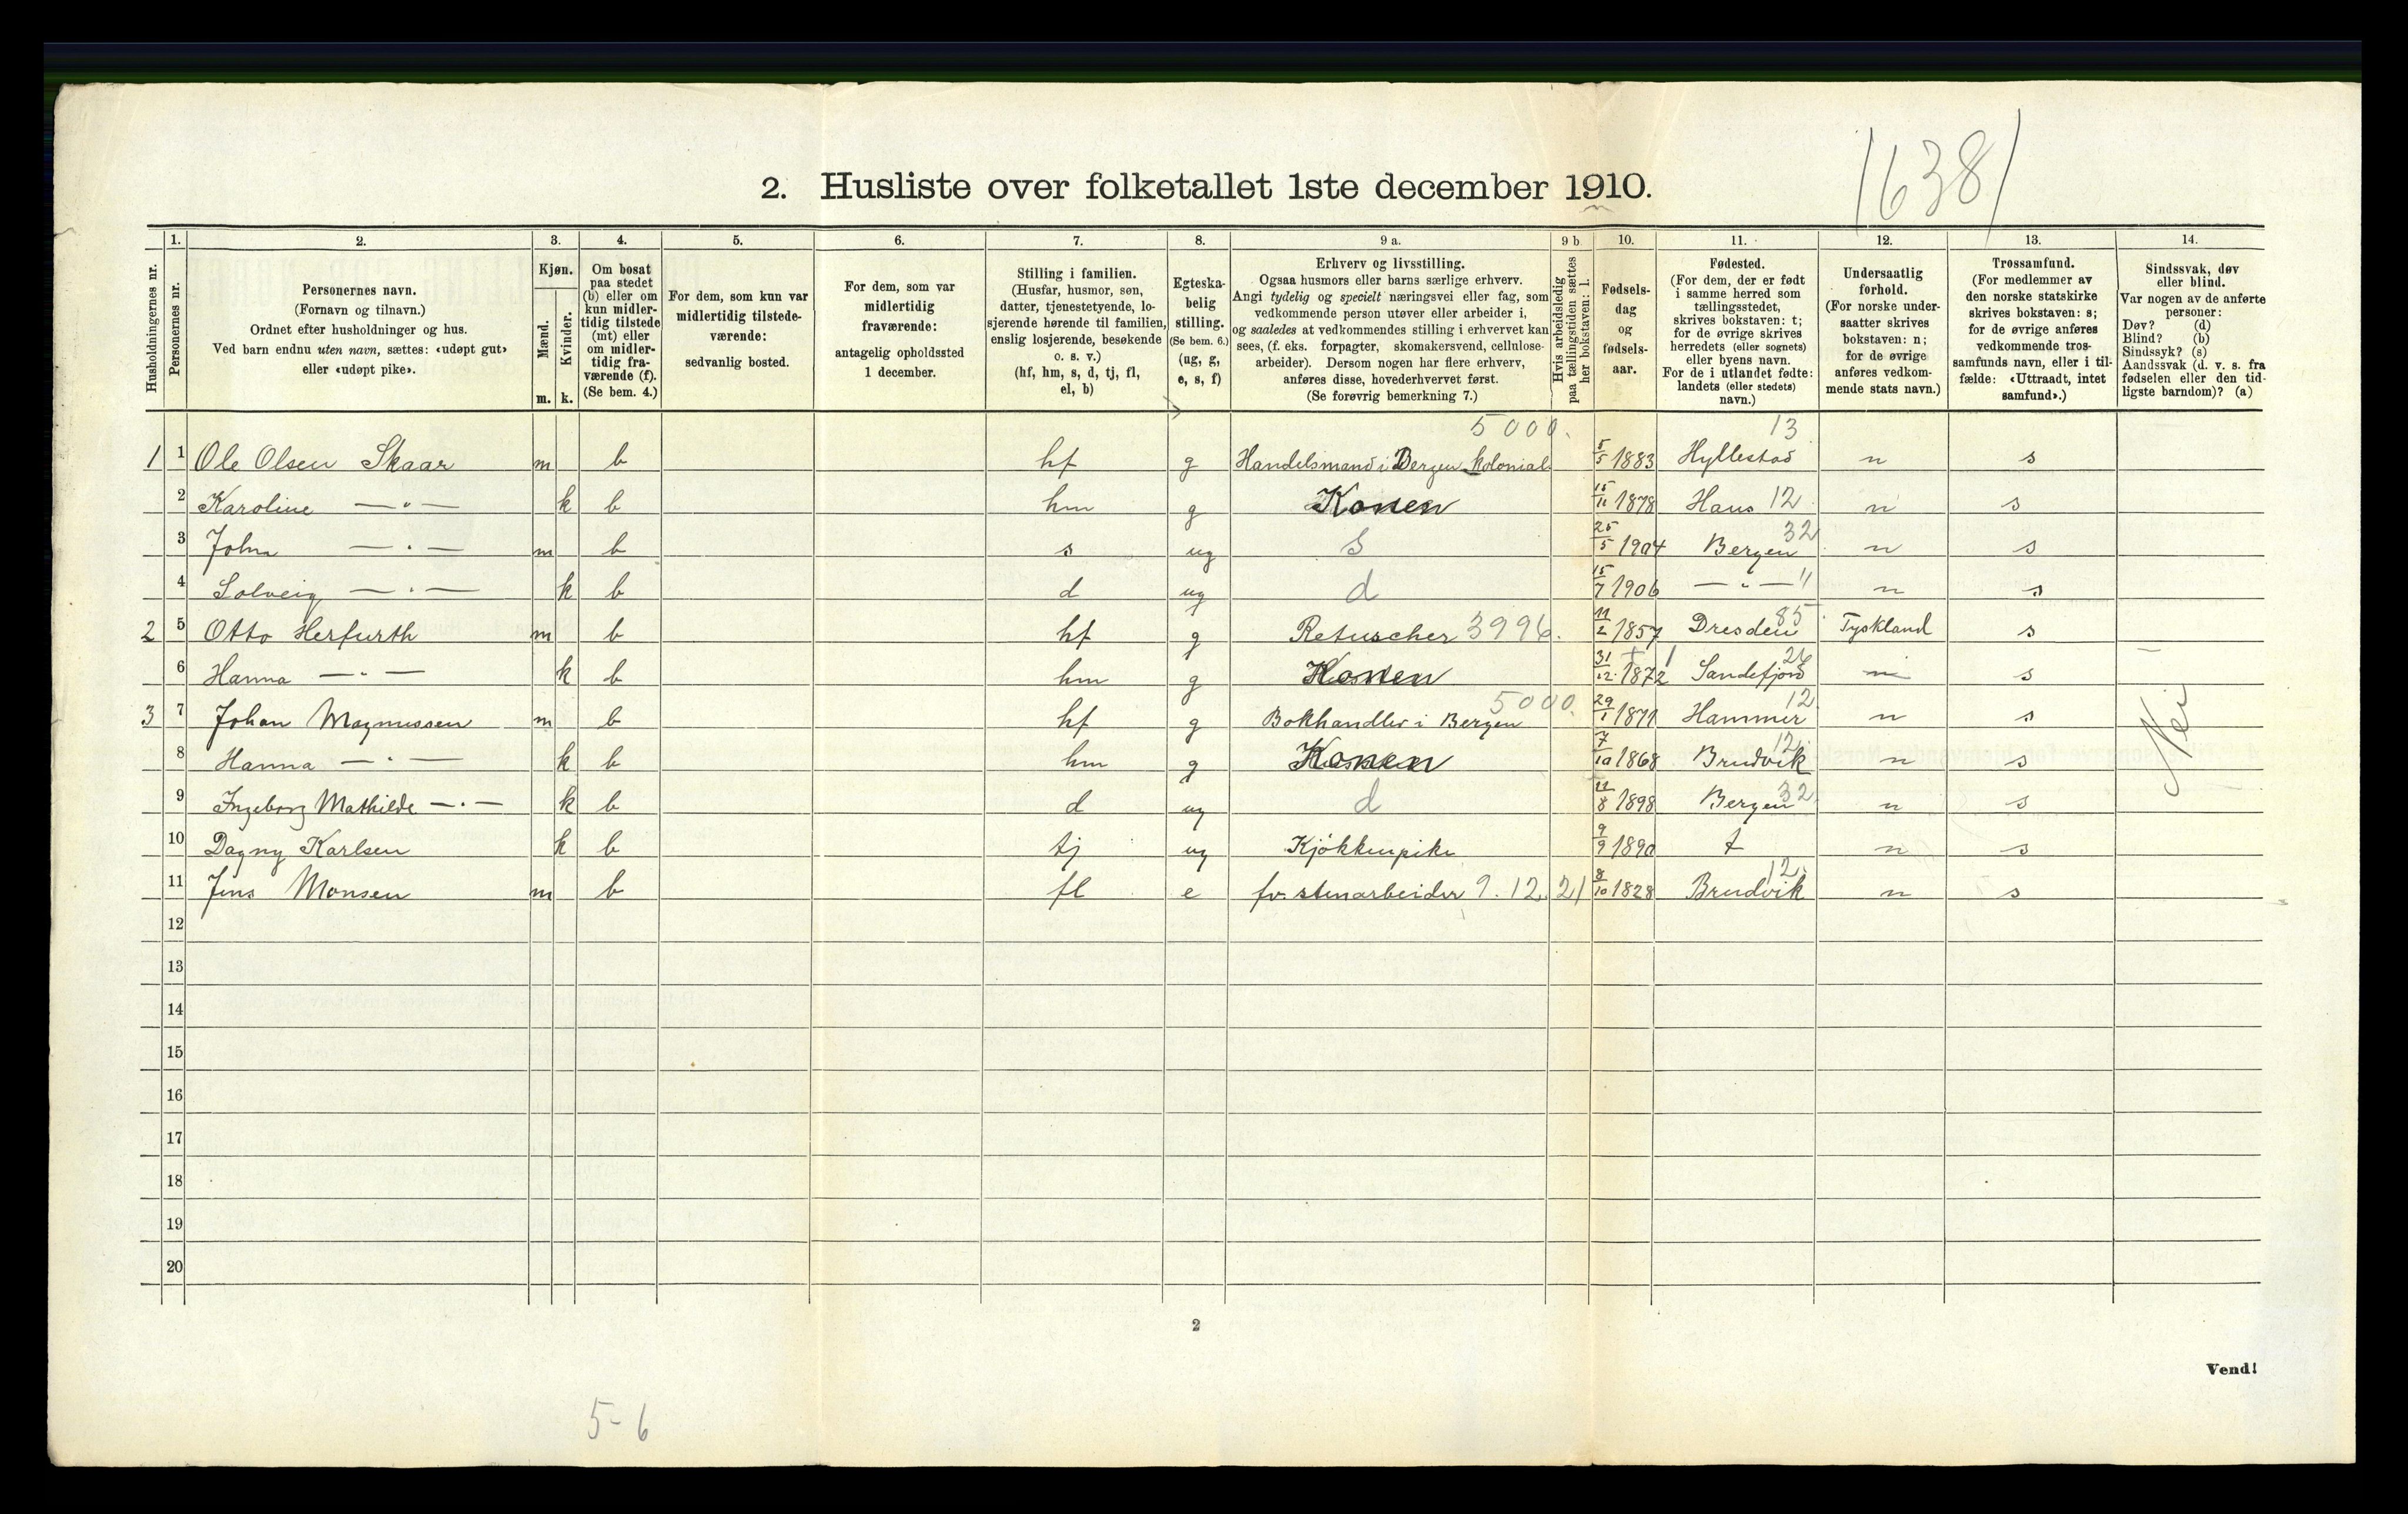 |638|
2. Husliste over folketallet 1ste december 1910.
Husholdningernes nr.
1.
Personernes nr.
2.
Personernes navn.
(Fornavn og tilnavn.)
Ordnet efter husholdninger og hus.
Ved barn endnu uten navn, sættes: «udøpt gut»
eller «udøpt pike».
3.
Kjøn.
Mænd.
Kvinder.
m. k.
4.
Om bosat
paa stedet
(b) eller om
kun midler-
tidig tilstede
(mt) eller
om midler-
tidig fra-
værende (f).
(Se bem. 4.)
5.
For dem, som kun var
midlertidig tilstede-
værende:
sedvanlig bosted.
6.
For dem, som var
midlertidig
fraværende:
antagelig opholdssted
1 december.
7.
Stilling i familien.
(Husfar, husmor, søn,
datter, tjenestetyende, lo-
sjerende hørende til familien,
enslig losjerende, besøkende
o. s. v.)
(hf, hm, s, d, tj, fl,
el, b)
8.
Egteska-
belig
stilling.
(Se bem. 6.)
(ug, g,
e, s, f)
9 a.
Erhverv og livsstilling.
Ogsaa husmors eller barns særlige erhverv.
Angi tydelig og specielt næringsvei eller fag, som
vedkommende person utøver eller arbeider i,
og saaledes at vedkommendes stilling i erhvervet kan
sees, (f. eks. forpagter, skomakersvend, cellulose-
arbeider). Dersom nogen har flere erhverv,
anføres disse, hovederhvervet først.
(Se forøvrig bemerkning 7.)
9 b.
Hvis arbeidsledig
paa tællingstiden sættes
her bokstaven: l.
10.
Fødsels-
dag
og
fødsels-
aar.
11.
Fødested.
(For dem, der er født
i samme herred som
tællingsstedet,
skrives bokstaven: t;
for de øvrige skrives
herredets (eller sognets)
eller byens navn.
For de i utlandet fødte:
landets (eller stedets)
navn.)
12.
Undersaatlig
forhold.
(For norske under-
saatter skrives
bokstaven: n;
for de øvrige
anføres vedkom-
mende stats navn.)
13.
Trossamfund.
(For medlemmer av
den norske statskirke
skrives bokstaven: s;
for de øvrige anføres
vedkommende tros-
samfunds navn, eller i til-
fælde: «Uttraadt, intet
samfund».)
14.
Sindssvak, døv
eller blind.
Var nogen av de anførte
personer:
Døv? (d)
Blind? (b)
Sindssyk? (s)
Aandssvak (d. v. s. fra
fødselen eller den tid-
ligste barndom)? (a)
5000. 13
1 1 Ole Olsen Skaar m b hf g Handelsmand i Bergen kolonial 5/5 1883 Hyllestad n s
2 Karoline —"— k b hm g Konen 15/11 1878 Haus 12 n s
3 John —"— m b s ug S 25/5 1904 Bergen 32 n s
4 Solveig —"— k b d ug d 15/7 1906 —"— " n s
2 5 Otto Herfurth m b hf g Retuscher 3996. 11/2 1857 Dresden 85 Tyskland s
6 Hanna —"— k b hm g Konen 31/12 1872 Sandefjord 26 n s
3 7 Johan Magnussen m b hf g Bokhandler i Bergen 5000. 29/1 1871 Hammer 12 n s
8 Hanna —"— k b hm g Konen 7/10 1868 Brudvik 12 n s
9 Ingeborg Mathilde —"— k b d ug d 11/8 1898 Bergen 32 n s
10 Dagny Karlsen k b tj ug Kjøkkenpike 9/9 1890 t n s
11 Jens Monsen m b fl e fv. stenarbeider 9.12.21 8/10 1828 Brudvik 12. n s
Nei
12
13
14
15
16
17
18
19
20
2
Vend!
5-6